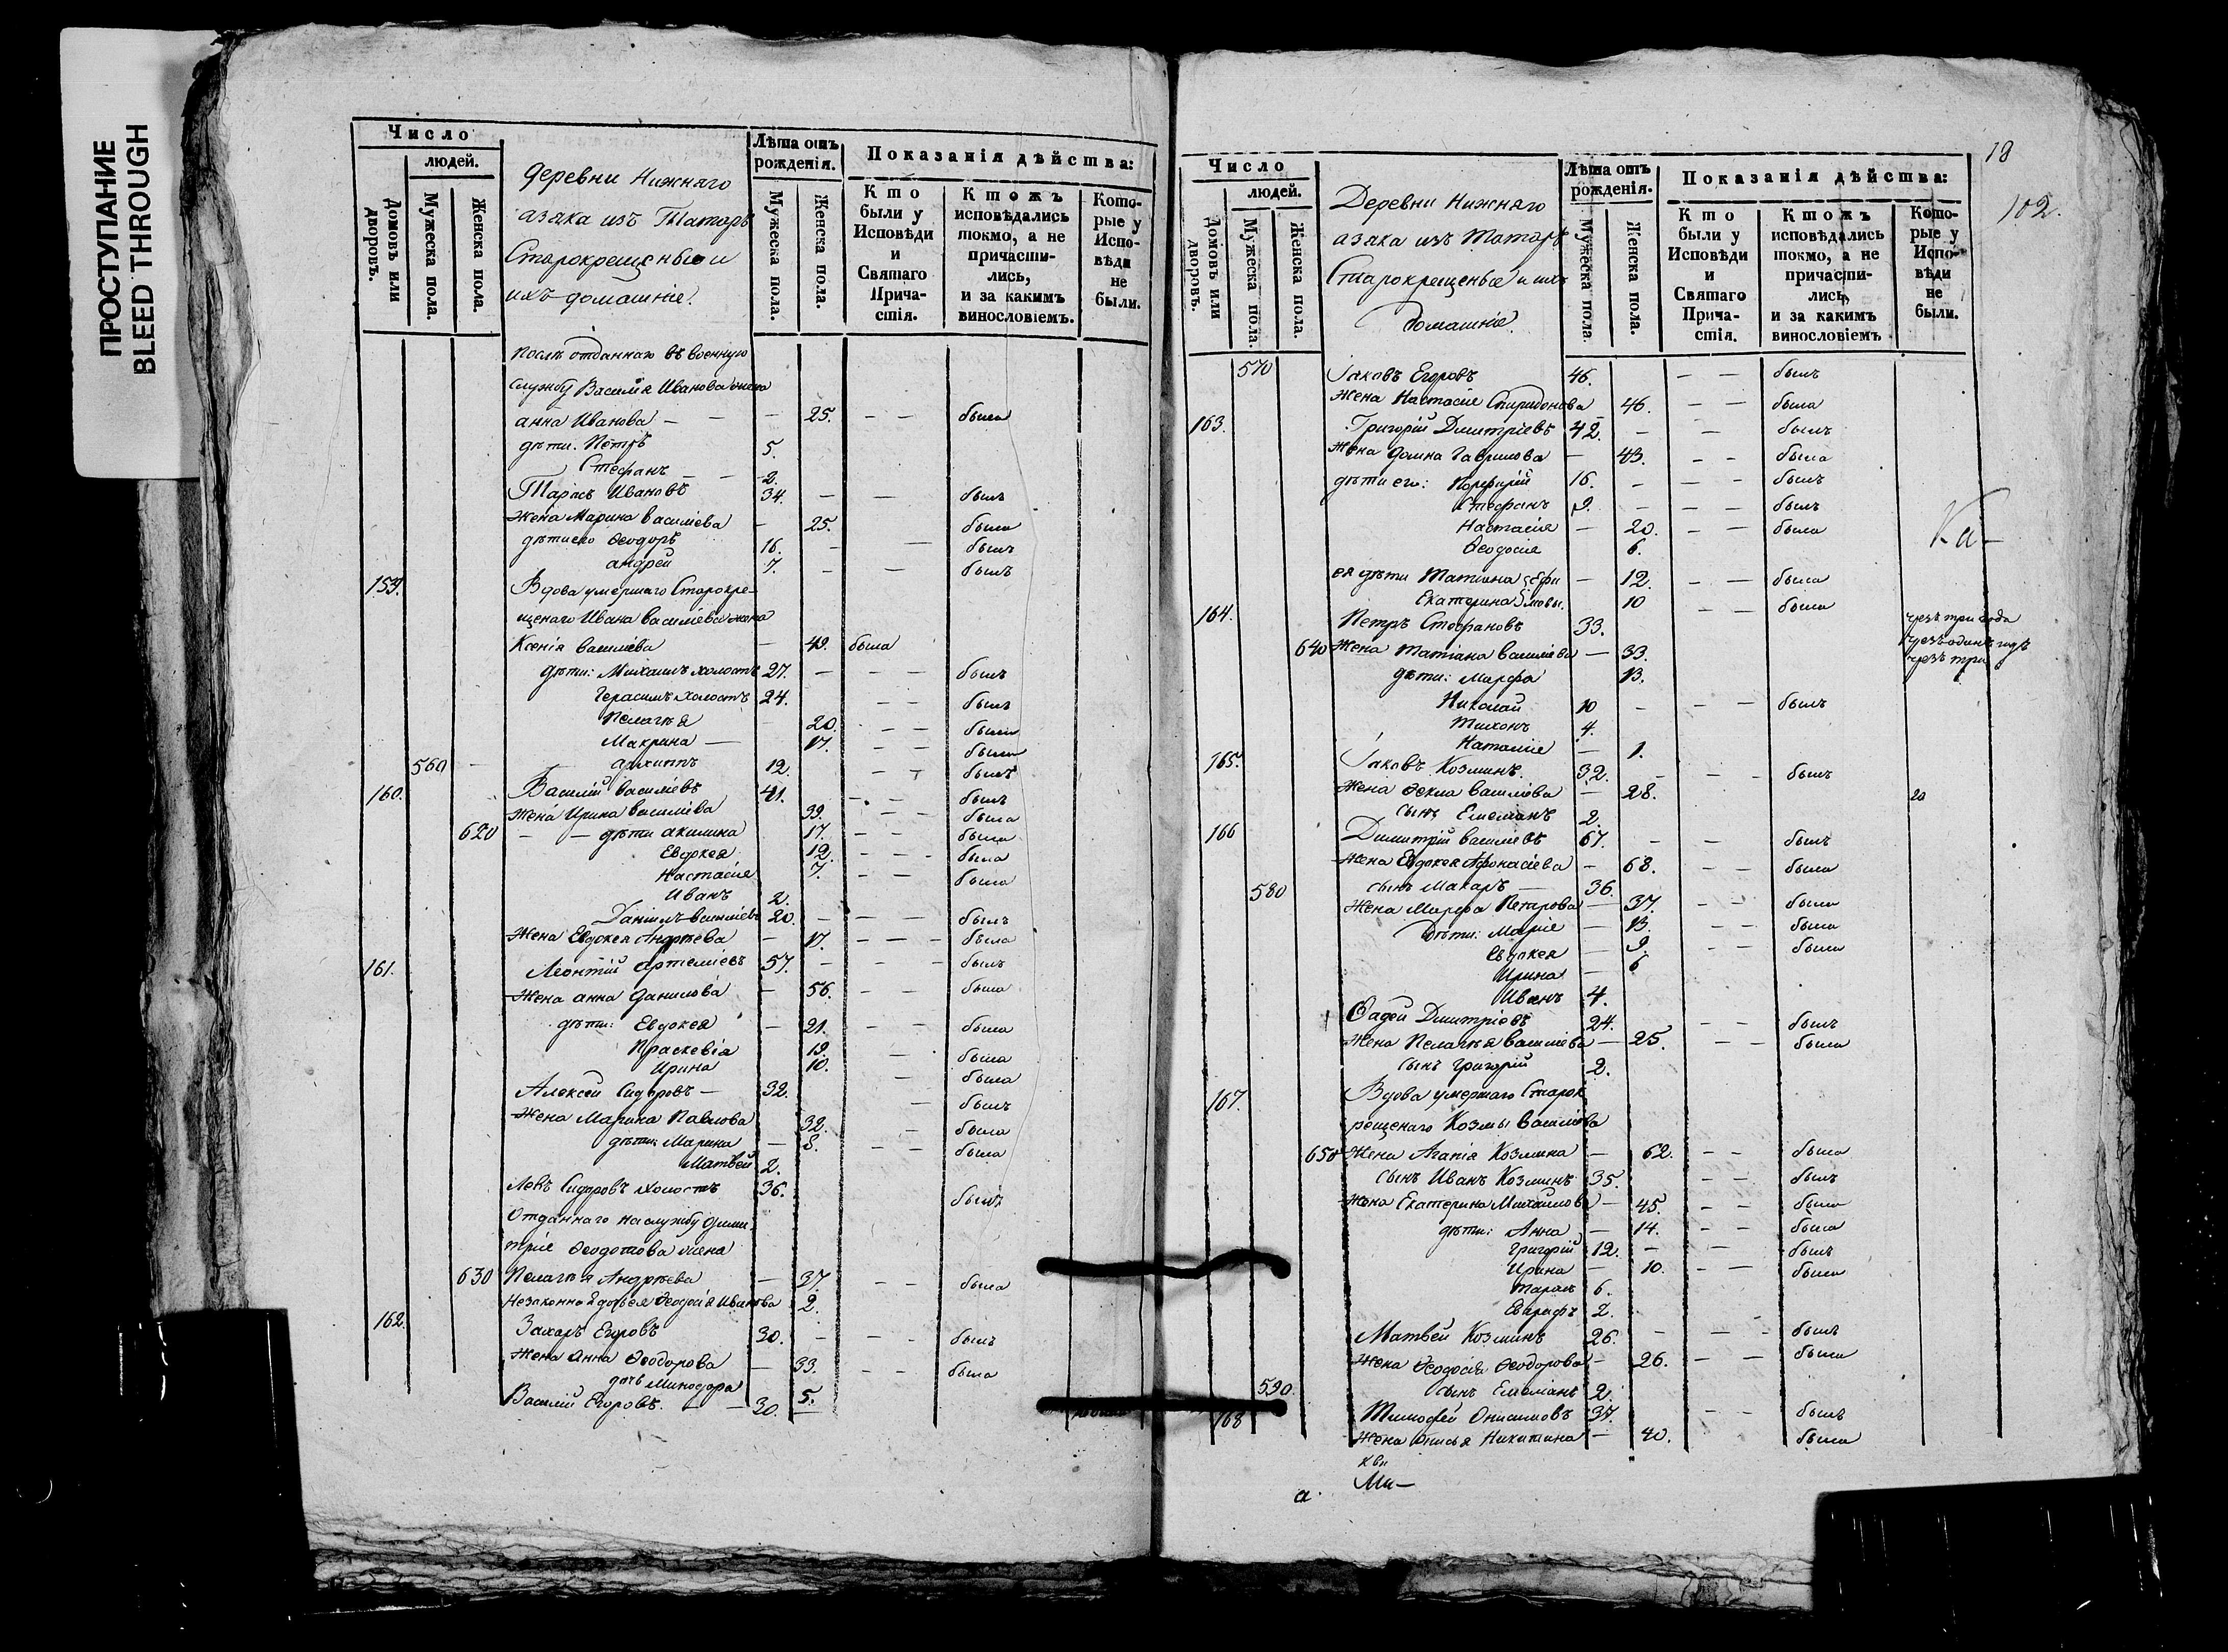 ПРОСТУПАНИЕ
BLEED THROUGH
Число
людей.
Домовъ или дворовъ.
Мужеска пола.
Женска пола.
деревни Нижняго
азяка изъ Татаръ
Старокрещеныи
ихъ домашніе.
Лѣта отъ рожденія.
Мужеска пола.
Женска пола.
Показанія дѣйства:
Кто были у Исповѣди и Святаго Причастія.
Ктожъ исповѣдались токмо, а не причастились, и за какимъ винословіемъ.
Которые у Исповѣди не были.
послѣ отданнаго въ военную
службу Василія Иванова жена
анна Иванова — — 25. — — была
дѣти. Петръ 5.
Стефанъ — — 2.
Тарасъ Ивановъ 34. — — былъ
Жена Марина василіева — 25. была
дѣти его Ѳеодоръ 16. — — былъ
андрей 7. — — былъ
159. Вдова умершаго Старокре-
щенаго Ивана василіева жена
Ксенія василіева — 49. была
дѣти: Михаилъ холостъ 27. — — — былъ
Герасимъ холостъ 24. — — былъ
Пелагѣя 20. — — была
Макрина — 17. — — была
560 — архиппъ 12. — — былъ
160. Василій василіевъ 41. — — былъ
Жена Ирина василіева 39. — — была
620 — — дѣти акилина 17. — — была
Евдокея 12. — — была
Настасія 7. — — была
Иванъ 2.
Даніилъ василіевъ 20. — — — былъ
Жена Евдокея Андрѣева — 17. — — — была
161. Леонтій артеміевъ 57. — — — былъ
Жена анна данилова — 56. — — была
дѣти: Евдокея — 21. — — была
Праскевія 19. — была
Ирина 10. — была
Алексей Сидоровъ — 32. — былъ
Жена Марина Павлова 32. — была
дѣти: Марина — 8. — — была
Матвей 2.
Левъ Сидоровъ холостъ 36. былъ
Отданнаго на службу дими-
трія Ѳеодотова жена
630 Пелагѣя Андрѣева — 37. — — была
Ѳеодосія Иванова 2.
162. Захаръ Егоровъ 30. — — — былъ
Жена Анна Ѳеодорова — 33. — — была
дочь Минодора 5.
Василій Егоровъ. — — 30. —
18
102.
Число
людей.
Домовъ или дворовъ.
Мужеска пола.
Женска пола.
Деревни Нижняго
азяка изъ Татаръ
Старокрещеные и ихъ
домашніе.
Лѣта отъ рожденія.
Мужеска пола
Женска пола.
Показанія дѣйства:
Кто были у Исповѣди и Святаго Причастія.
Ктожъ исповѣдались токмо, а не причастились, и за какимъ винословіемъ
Которые у Исповѣди не были.
570 Іаковъ Егоровъ 46. — — былъ
Жена Настасія Спиридонова 46. — — была
163. Григорій Димитріевъ 42. — — былъ
Жена Домна Гаврилова — 43. — — была
дѣти его: Порфирій 16. — — — былъ
Стефанъ 9. — — — былъ
Настасія — 20. — — была
Ѳеодосія 6.
Ка-
ея дѣти Татіана Ефи — 12. — — была
Екатерина мовы. 10 — — была
164. Петръ Стефановъ 33. чрезъ три года
640 Жена Татіана василіева — 33. чрезъ одинъ годъ
чрезъ три
дѣти: Марфа 13.
Николай 10 — — — былъ
Тихонъ 4.
Наталія — 1.
165. Іаковъ Козминъ. 32. — — — былъ
Жена Ѳекла василіева — 28. 20
сынъ Емеліанъ 2.
166 Димитрій василіевъ 67. — — былъ
Жена Евдокея Афонасіева — 68. — — была
580 сынъ Макаръ — 36.
Жена Марфа Петарова — 37. — — была
дѣти: Марія — 13. — — была
Евдокея — 9 — — была
Ирина — 6
Иванъ 4.
Фадей Димитріевъ 24. — — былъ
Жена Пелагѣя василіева — 25. — — была
сынъ Григорій 2.
167. Вдова умершаго Старок
рещенаго Козмы василіева
650 Жена Агапія Козмина — 62. — — была
сынъ Иванъ Козминъ 35. — — былъ
Жена Екатерина Михайлова — 45. — — была
дѣти: Анна — 14. — — была
Григорій 12. — — былъ
Ирина — 10. — — была
Тарасъ 6.
Евграфъ 2.
Матвей Козминъ 26. — — — былъ
Жена Ѳеодосія Ѳеодорова — 26. — — была
590. сынъ Емеліанъ 2.
168 Тимофей Онисимовъ 37. — — былъ
Жена Анисья Никитина — 40. — была
Ми-
а.